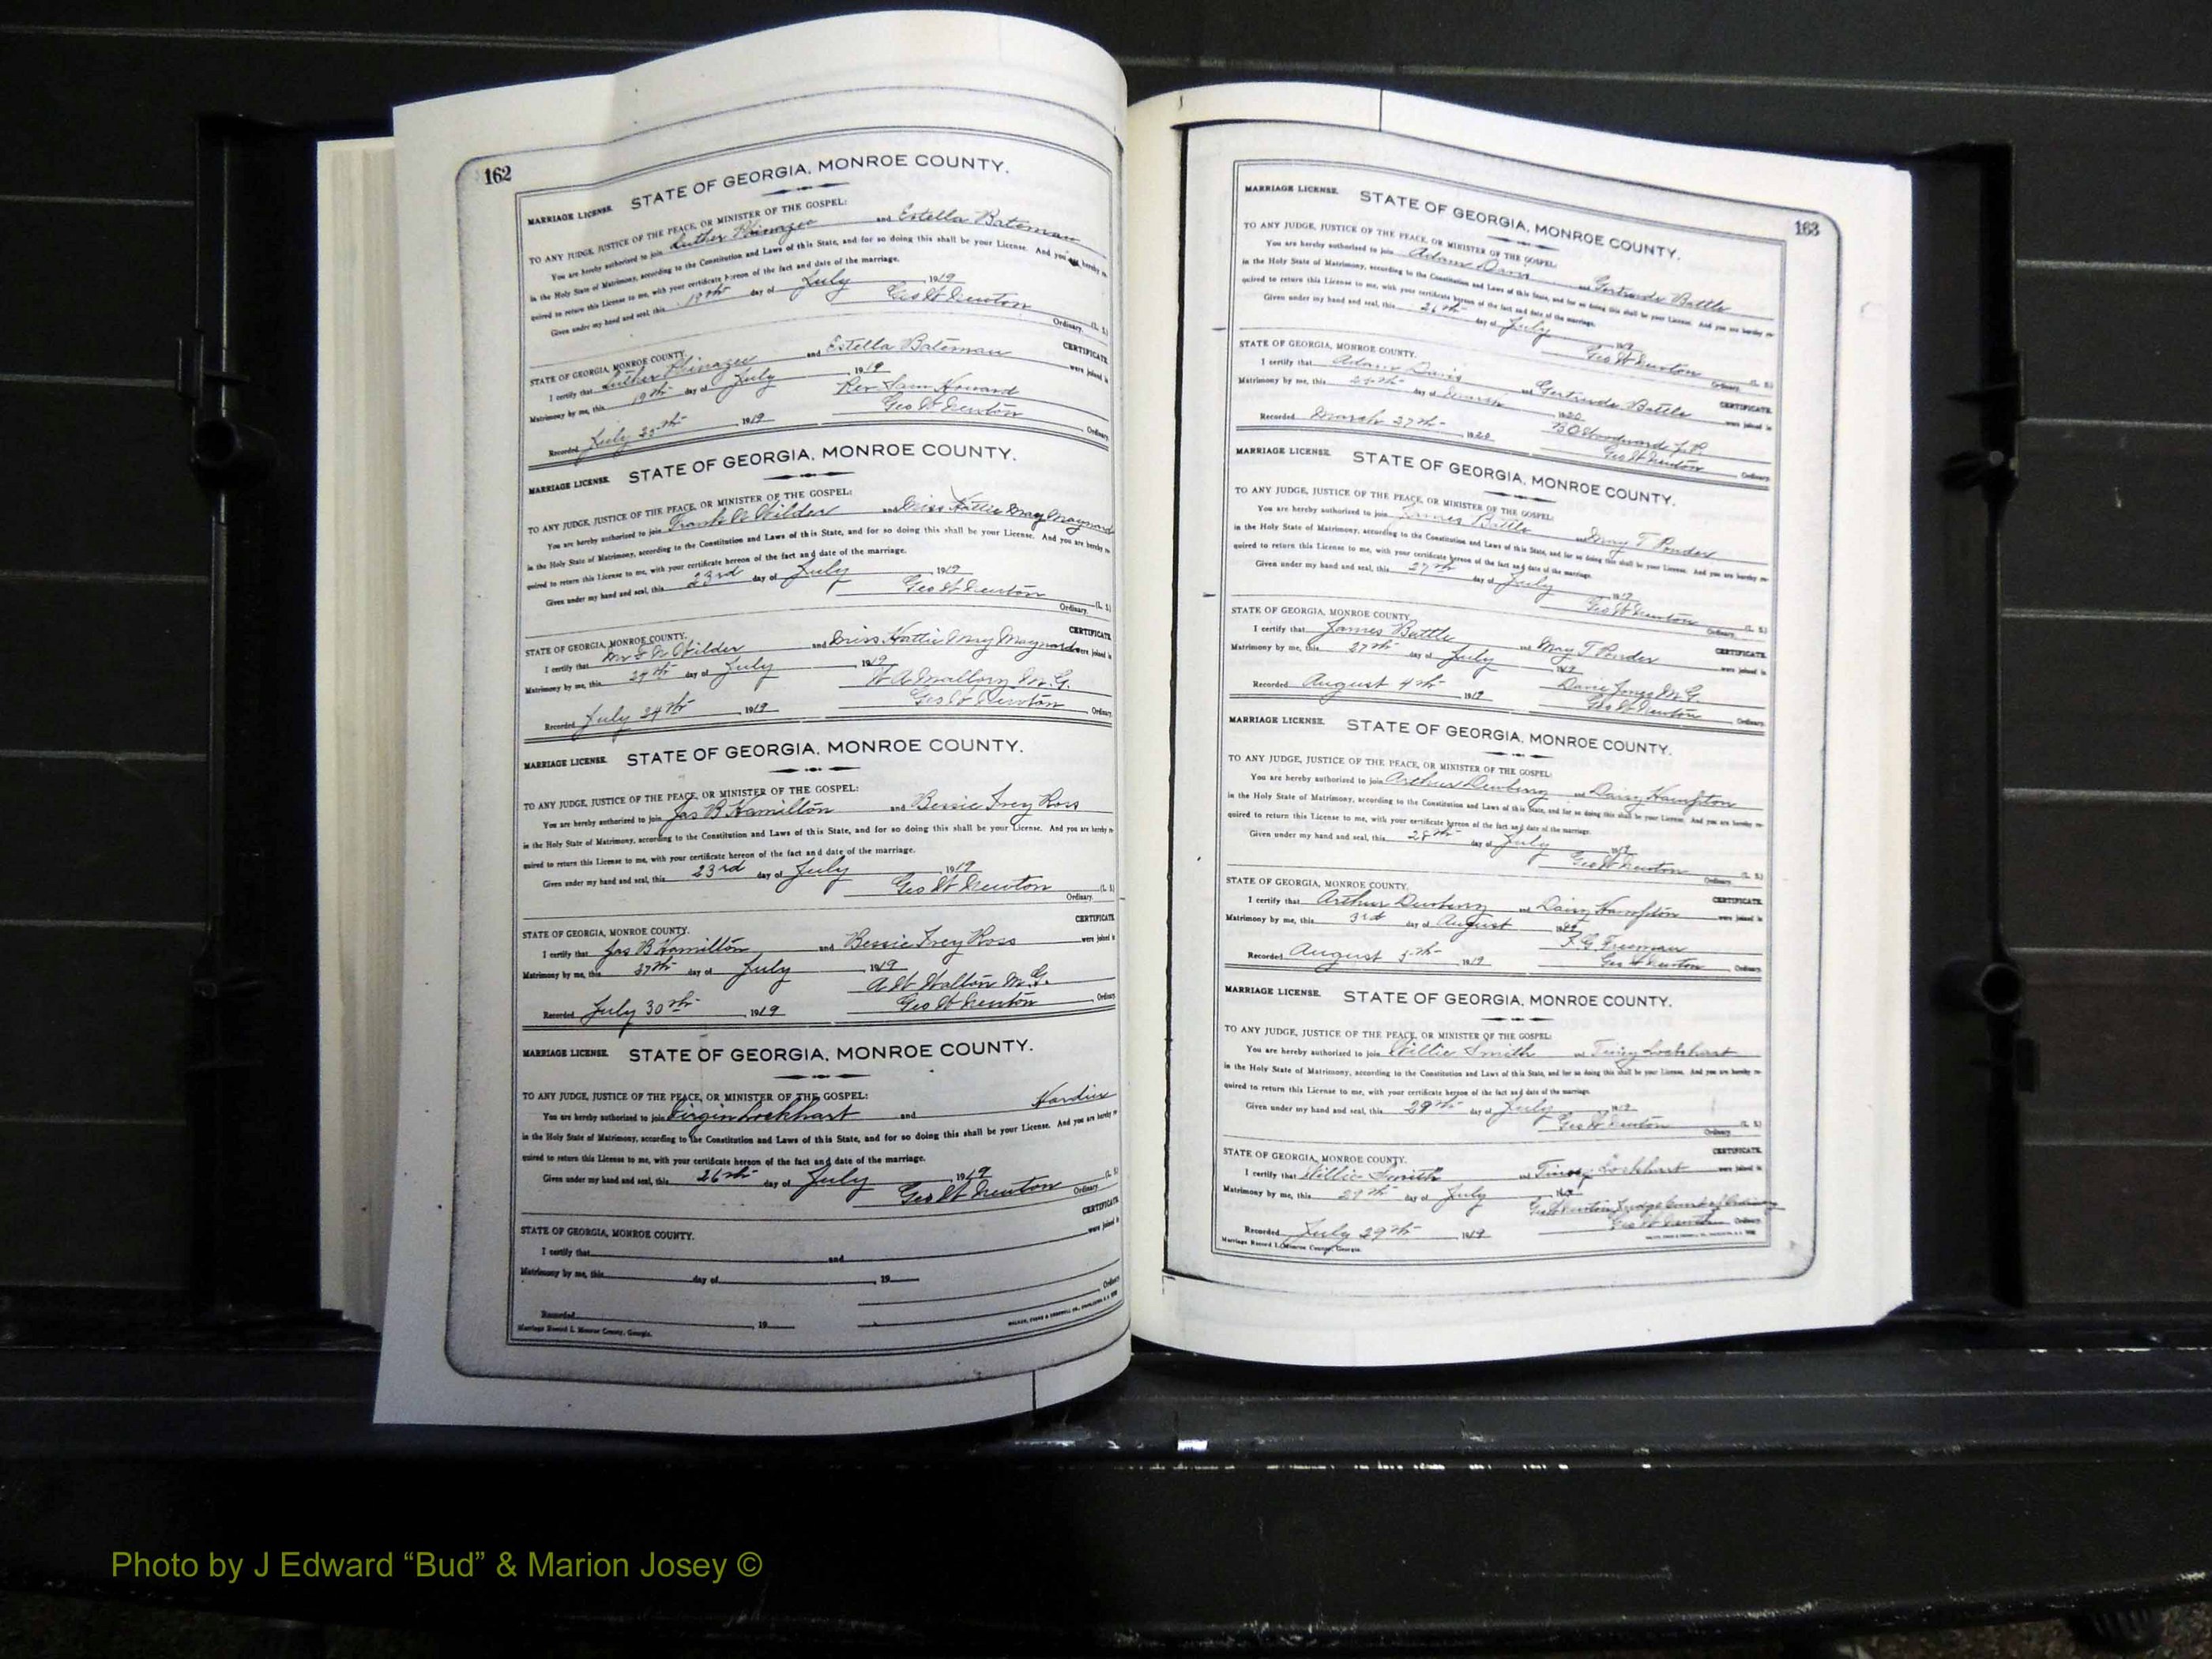 162
MARRIAGE LICENSE. STATE OF GEORGIA, MONROE COUNTY.
TO ANY JUDGE, JUSTICE OF THE PEACE, OR MINISTER OF THE GOSPEL:
You are hereby authorized to join Luther and Estella Bateman
in the Holy State of Matrimony, according to the Constitution and Laws of this State, and for so doing this shall be your License. And you are hereby re-
quired to return this License to me, with your certificate hereon of the fact and date of the marriage.
Given under my hand and seal, this 19th day of July 1919
Geo W Newton (L. S.)
Ordinary.
STATE OF GEORGIA, MONROE COUNTY. CERTIFICATE
I certify that Luther and Estella Bateman were joined in
Matrimony by me, this 19th day of July 1919
Rev Sam Howard
Recorded July 25th 1919 Geo W Newton Ordinary
MARRIAGE LICENSE. STATE OF GEORGIA, MONROE COUNTY.
TO ANY JUDGE, JUSTICE OF THE PEACE, OR MINISTER OF THE GOSPEL:
You are hereby authorized to join Frank W Wilder and Miss Hattie May Maynard
in the Holy State of Matrimony, according to the Constitution and Laws of this State, and for so doing this shall be your License. And you are hereby re-
quired to return this License to me, with your certificate hereon of the fact and date of the marriage.
Given under my hand and seal, this 23rd day of July 1919
Geo W Newton (L. S.)
Ordinary.
STATE OF GEORGIA, MONROE COUNTY. CERTIFICATE
I certify that Mr F W Wilder and Miss Hattie May Maynard were joined in
Matrimony by me, this 24th day of July 1919
W A Mallory M.G.
Recorded July 24th 1919 Geo W Newton Ordinary
MARRIAGE LICENSE. STATE OF GEORGIA, MONROE COUNTY.
TO ANY JUDGE, JUSTICE OF THE PEACE, OR MINISTER OF THE GOSPEL:
You are hereby authorized to join Jas B Hamilton and Bessie Ivey Ross
in the Holy State of Matrimony, according to the Constitution and Laws of this State, and for so doing this shall be your License. And you are hereby re-
quired to return this License to me, with your certificate hereon of the fact and date of the marriage.
Given under my hand and seal, this 23rd day of July 1919
Geo W Newton (L. S.)
Ordinary.
STATE OF GEORGIA, MONROE COUNTY. CERTIFICATE
I certify that Jas B Hamilton and Bessie Ivey Ross were joined in
Matrimony by me, this 27th day of July 1919
A W Walton M.G.
Recorded July 30th 1919 Geo W Newton Ordinary
MARRIAGE LICENSE. STATE OF GEORGIA, MONROE COUNTY.
TO ANY JUDGE, JUSTICE OF THE PEACE, OR MINISTER OF THE GOSPEL:
You are hereby authorized to join Virgin Lockhart and Hardin
in the Holy State of Matrimony, according to the Constitution and Laws of this State, and for so doing this shall be your License. And you are hereby re-
quired to return this License to me, with your certificate hereon of the fact and date of the marriage.
Given under my hand and seal, this 26th day of July 1919
Geo W Newton (L. S.)
Ordinary.
STATE OF GEORGIA, MONROE COUNTY. CERTIFICATE
I certify that and were joined in
Matrimony by me, this day of , 19
Recorded , 19 Ordinary
Marriage Record I. Monroe County, Georgia.
163
MARRIAGE LICENSE. STATE OF GEORGIA, MONROE COUNTY.
TO ANY JUDGE, JUSTICE OF THE PEACE, OR MINISTER OF THE GOSPEL:
You are hereby authorized to join Adam Davis and Gertrude Battle
in the Holy State of Matrimony, according to the Constitution and Laws of this State, and for so doing this shall be your License. And you are hereby re-
quired to return this License to me, with your certificate hereon of the fact and date of the marriage.
Given under my hand and seal, this 26th day of July 1919
Geo W Newton (L. S.)
Ordinary.
STATE OF GEORGIA, MONROE COUNTY. CERTIFICATE
I certify that Adam Davis and Gertrude Battle were joined in
Matrimony by me, this day of March 1920
B O Woodward J.P.
Recorded March 27th 1920 Geo W Newton Ordinary
MARRIAGE LICENSE. STATE OF GEORGIA, MONROE COUNTY.
TO ANY JUDGE, JUSTICE OF THE PEACE, OR MINISTER OF THE GOSPEL:
You are hereby authorized to join James Battle and May T Ponder
in the Holy State of Matrimony, according to the Constitution and Laws of this State, and for so doing this shall be your License. And you are hereby re-
quired to return this License to me, with your certificate hereon of the fact and date of the marriage.
Given under my hand and seal, this 27th day of July 1919
Geo W Newton (L. S.)
Ordinary.
STATE OF GEORGIA, MONROE COUNTY. CERTIFICATE
I certify that James Battle and May T Ponder were joined in
Matrimony by me, this 27th day of July 1919
Jones M.G.
Recorded August 4th 1919 Geo W Newton Ordinary
MARRIAGE LICENSE. STATE OF GEORGIA, MONROE COUNTY.
TO ANY JUDGE, JUSTICE OF THE PEACE, OR MINISTER OF THE GOSPEL:
You are hereby authorized to join Arthur Dewberry and Daisy Hampton
in the Holy State of Matrimony, according to the Constitution and Laws of this State, and for so doing this shall be your License. And you are hereby re-
quired to return this License to me, with your certificate hereon of the fact and date of the marriage.
Given under my hand and seal, this 28th day of July 1919
Geo W Newton (L. S.)
Ordinary.
STATE OF GEORGIA, MONROE COUNTY. CERTIFICATE
I certify that Arthur Dewberry and Daisy Hampton were joined in
Matrimony by me, this 3rd day of August 1919
F. G. Freeman
Recorded August 5th 1919 Geo W Newton Ordinary
MARRIAGE LICENSE. STATE OF GEORGIA, MONROE COUNTY.
TO ANY JUDGE, JUSTICE OF THE PEACE, OR MINISTER OF THE GOSPEL:
You are hereby authorized to join Willie Smith and Lockhart
in the Holy State of Matrimony, according to the Constitution and Laws of this State, and for so doing this shall be your License. And you are hereby re-
quired to return this License to me, with your certificate hereon of the fact and date of the marriage.
Given under my hand and seal, this 29th day of July 1919
Geo W Newton (L. S.)
Ordinary.
STATE OF GEORGIA, MONROE COUNTY. CERTIFICATE
I certify that Willie Smith and Lockhart were joined in
Matrimony by me, this 29th day of July 1919
Geo W Newton Judge Court of Ordinary
Recorded July 29th 1919 Geo W Newton Ordinary
Marriage Record I. Monroe County, Georgia.
Photo by J Edward “Bud” & Marion Josey ©